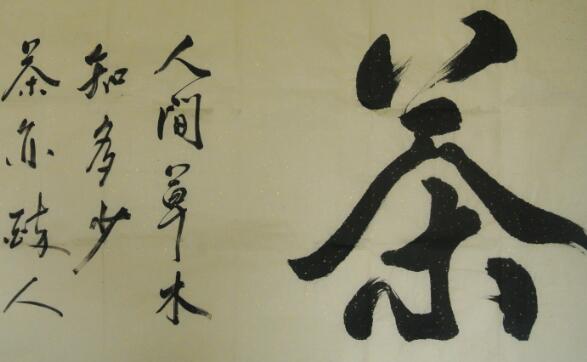 茶
人間草木
知多少
茶亦醉人